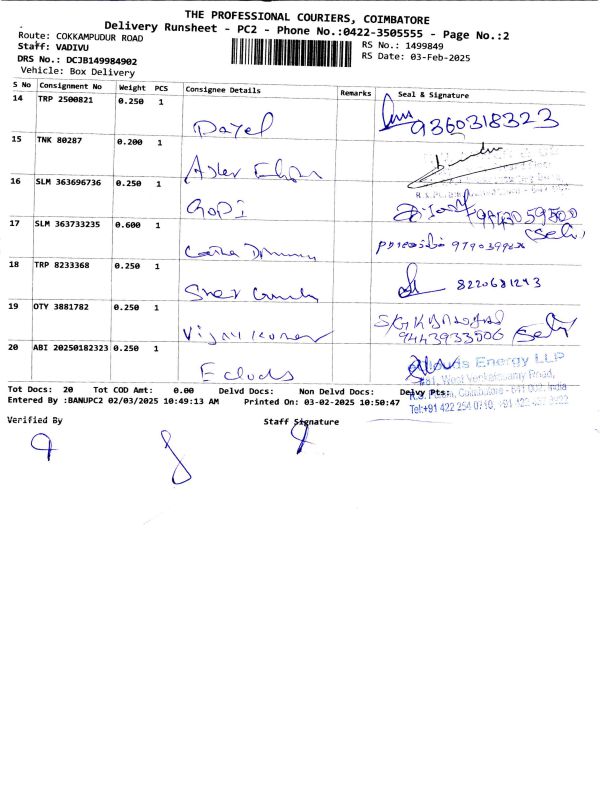 THE PROFESSIONAL COURIERS, COIMBATORE
Delivery Runsheet - PC2 - Phone No.:0422-3505555 - Page No.:2
Route: COKKAMPUDUR ROAD
Staff: VADIVU
RS No.: 1499849
DRS No.: DCJB149984902
RS Date: 03-Feb-2025
Vehicle: Box Delivery
S No Consignment No Weight PCS Consignee Details Remarks Seal & Signature
14 TRP 2500821 0.250 1
Dayel 9360318323
15 TNK 80287 0.200 1
16 SLM 363696736 0.250 1
Gopi
17 SLM 363733235 0.600 1
(Selv)
18 TRP 8233368 0.250 1
8220681243
19 OTY 3881782 0.250 1
Vijay kumar 9443933506
20 ABI 20250182323 0.250 1
Eclouds
Eclouds Energy LLP
West Venkatasamy Road,
R.S. Puram, Coimbatore - 641 002. India
Tel:+91 422 254 0710,
Tot Docs: 20 Tot COD Amt: 0.00 Delvd Docs: Non Delvd Docs: Delvy Pts:
Entered By :BANUPC2 02/03/2025 10:49:13 AM Printed On: 03-02-2025 10:50:47
Verified By Staff Signature